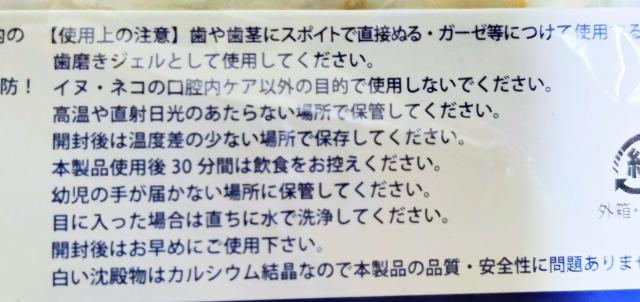 内の
【使用上の注意】歯や歯茎にスポイトで直接ぬる・ガーゼ等につけて使用する
歯磨きジェルとして使用してください。
防！
イヌ・ネコの口腔内ケア以外の目的で使用しないでください。
高温や直射日光のあたらない場所で保管してください。
開封後は温度差の少ない場所で保存してください。
本製品使用後30分間は飲食をお控えください。
幼児の手が届かない場所に保管してください。
目に入った場合は直ちに水で洗浄してください。
開封後はお早めにご使用下さい。
白い沈殿物はカルシウム結晶なので本製品の品質・安全性に問題ありませ
外箱・